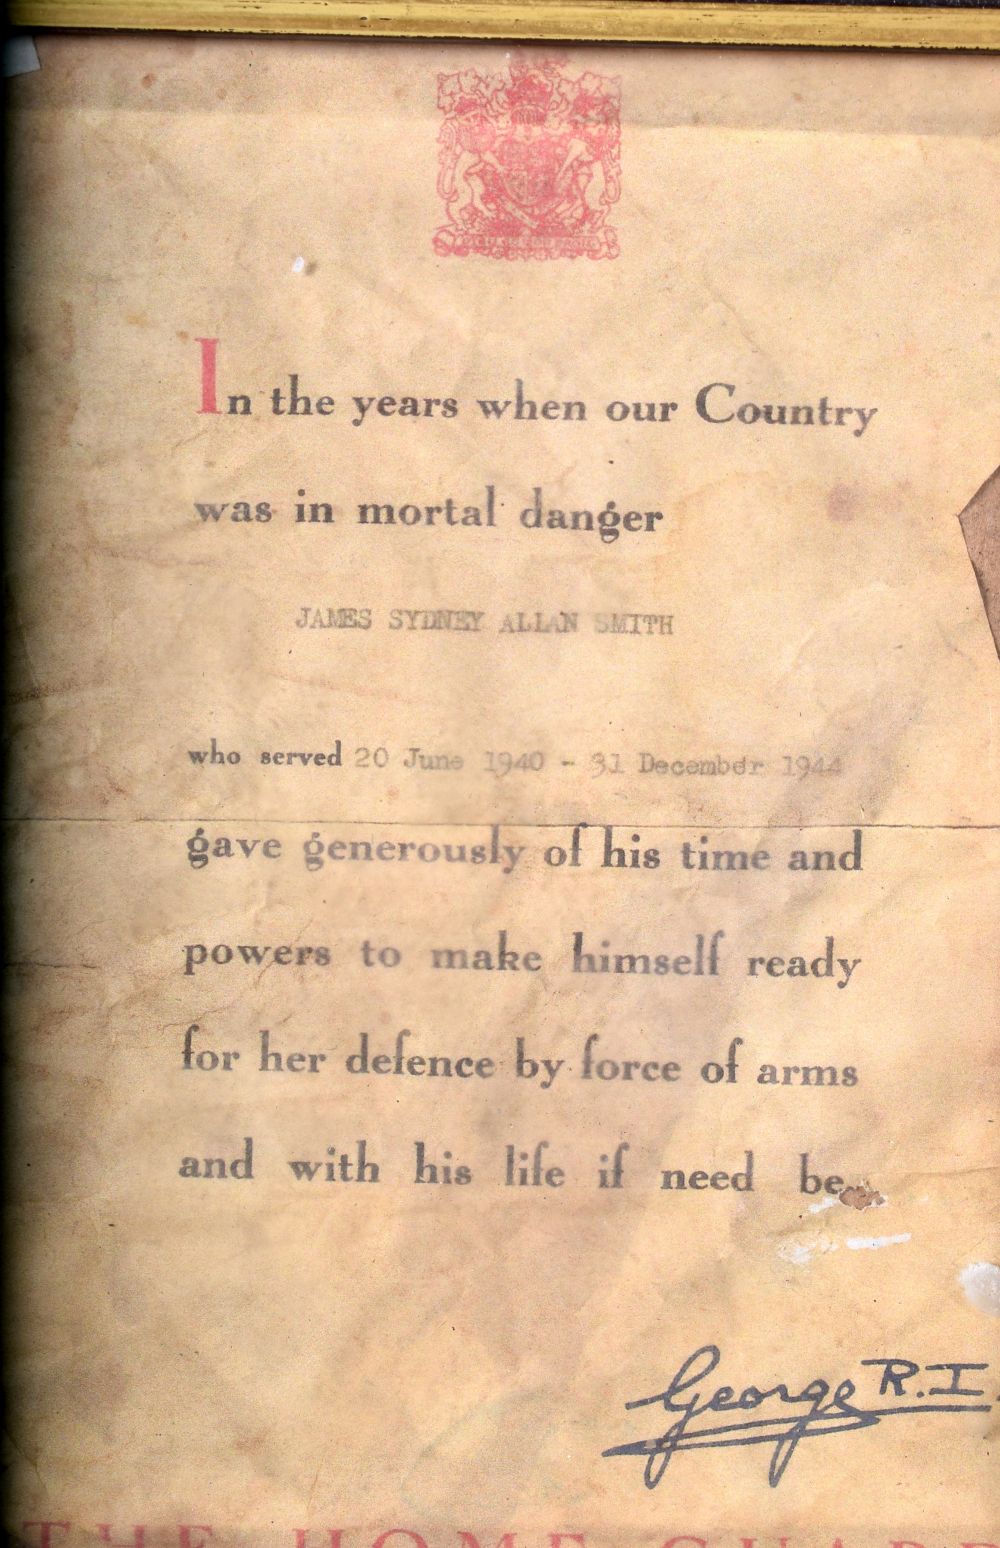 In the years when our Country
was in mortal danger
JAMES SYDNEY ALLAN SMITH
who served 20 June 1940 - 31 December 1944
gave generously of his time and
powers to make himself ready
for her defence by force of arms
and with his life if need be.
George R.I.
THE HOME GUARD